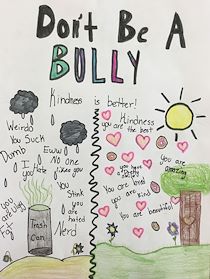 Don't Be A
BULLY
Kindness is better!
Weirdo
You Suck
Dumb
I hate
you
Eww
No one
likes you
You
Stink
you
are
hated
Nerd
you are ugly
Fat
Trash
Can
Kindness
you are the best
you are
amazing
You are loved
you are kind
You are beautiful